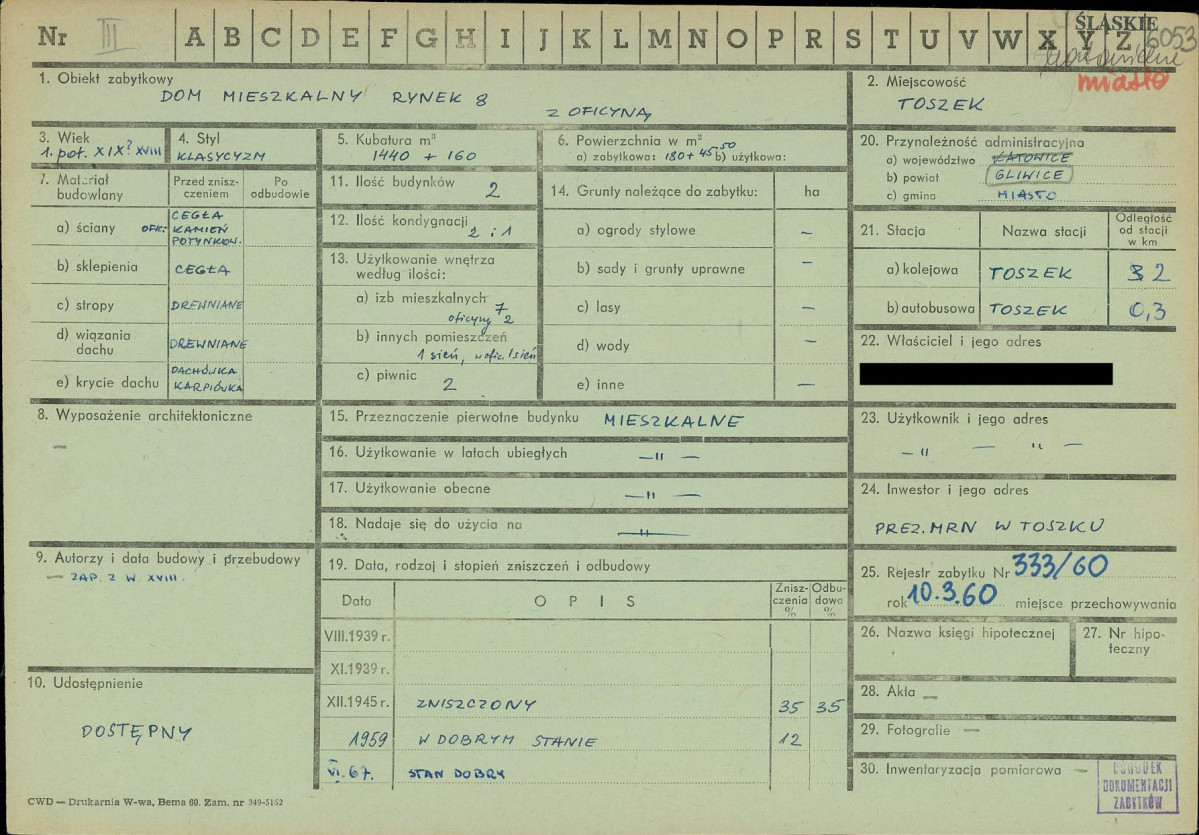 Nr III A B C D E F G H I J K L M N O P R S T U V W X Y Z
ŚLĄSKIE
6053
miasto
1. Obiekt zabytkowy
DOM MIESZKALNY RYNEK 8
Z OFICYNĄ
2. Miejscowość
TOSZEK
3. Wiek
1. poł. XIX? XVIII
4. Styl
KLASYCYZM
5. Kubatura m³
1440 + 160
6. Powierzchnia w m²
a) zabytkowa: 180 + 45.50 b) użytkowa:
20. Przynależność administracyjna
a) województwo KATOWICE
b) powiat GLIWICE
c) gmina MIASTO
7. Materiał budowlany
Przed zniszczeniem
Po odbudowie
a) ściany OFIC: CEGŁA
KAMIEŃ
POTYNKOW.
b) sklepienia CEGŁA
c) stropy DREWNIANE
d) wiązania dachu DREWNIANE
e) krycie dachu DACHÓWKA
KARPIÓWKA
11. Ilość budynków 2
12. Ilość kondygnacji 2 i 1
13. Użytkowanie wnętrza
według ilości:
a) izb mieszkalnych 7
oficyny 2
b) innych pomieszczeń
1 sień, w ofic. 1 sień
c) piwnic 2
14. Grunty należące do zabytku: ha
a) ogrody stylowe —
b) sady i grunty uprawne —
c) lasy —
d) wody —
e) inne —
21. Stacja Nazwa stacji Odległość od stacji w km
a) kolejowa TOSZEK 2
b) autobusowa TOSZEK 0,3
22. Właściciel i jego adres
8. Wyposażenie architektoniczne
—
15. Przeznaczenie pierwotne budynku MIESZKALNE
16. Użytkowanie w latach ubiegłych —"—
17. Użytkowanie obecne —"—
18. Nadaje się do użycia na —"—
23. Użytkownik i jego adres
—" — " —
24. Inwestor i jego adres
PREZ. MRN W TOSZKU
9. Autorzy i data budowy i przebudowy
— ZAP. Z W. XVIII.
19. Data, rodzaj i stopień zniszczeń i odbudowy
Data O P I S Zniszczenia % Odbudowa %
VIII.1939 r.
XI.1939 r.
XII.1945 r. ZNISZCZONY 35 35
1959 W DOBRYM STANIE 12
VI. 67. STAN DOBRY
25. Rejestr zabytku Nr 333/60
rok 10.3.60 miejsce przechowywania
26. Nazwa księgi hipotecznej
27. Nr hipoteczny
28. Akta —
29. Fotografie —
30. Inwentaryzacja pomiarowa —
10. Udostępnienie
DOSTĘPNY
OŚRODEK
DOKUMENTACJI
ZABYTKÓW
CWD — Drukarnia W-wa, Bema 60. Zam. nr 349-5162